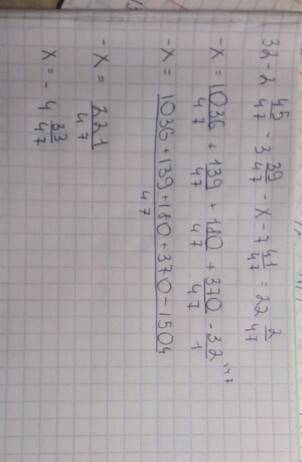 32 - 2 45/47 - 3 39/47 - X - 7 41/47 = 22 2/47
-X = 1036/47 + 139/47 + 180/47 + 370/47 - 32/1 ¹⁴⁷
-X = 1036+139+180+370-1504/47
-X = 221/47
X = -4 33/47